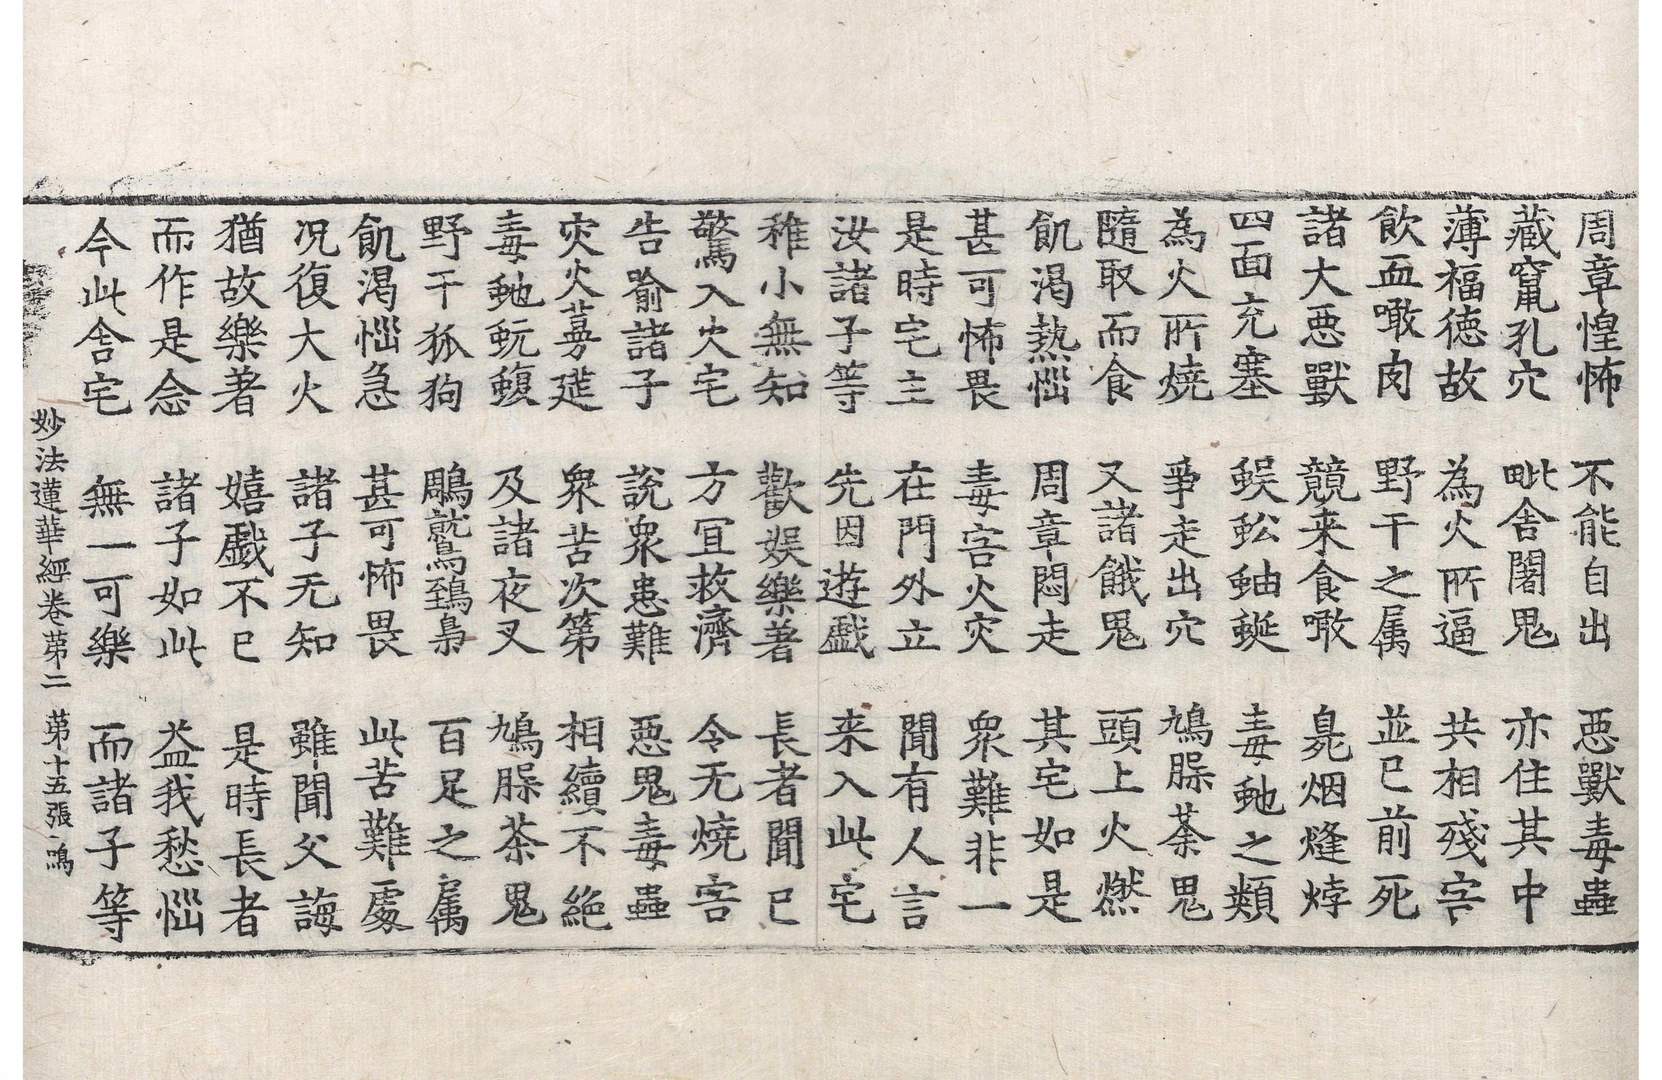 周章惶怖 不能自出 惡獸毒蟲
藏竄孔穴 毗舍闍鬼 亦住其中
薄福德故 為火所逼 共相殘害
飮血噉肉 野干之属 並已前死
諸大惡獸 競来食噉 臭烟熢㶿
四面充塞 蜈蚣蚰蜒 毒虵之類
為火所燒 爭走出穴 鳩腺荼鬼
隨取而食 又諸餓鬼 頭上火燃
飢渴熱惱 周章悶走 其宅如是
甚可怖畏 毒害火灾 衆難非一
是時宅主 在門外立 聞有人言
汝諸子等 先因遊戲 来入此宅
稚小無知 歡娛樂著 長者聞已
驚入火宅 方冝救濟 令无燒害
告喻諸子 說衆患難 惡鬼毒蟲
灾火蔓莚 衆苦次第 相續不絶
毒虵蚖蝮 及諸夜叉 鳩腺荼鬼
野干狐狗 鵰鷲鵄梟 百足之属
飢渴惱急 甚可怖畏 此苦難處
况復大火 諸子无知 雖聞父誨
猶故樂著 嬉戲不已 是時長者
而作是念 諸子如此 益我愁惱
今此舍宅 無一可樂 而諸子等
妙法蓮華經卷苐二 苐十五張 鴻